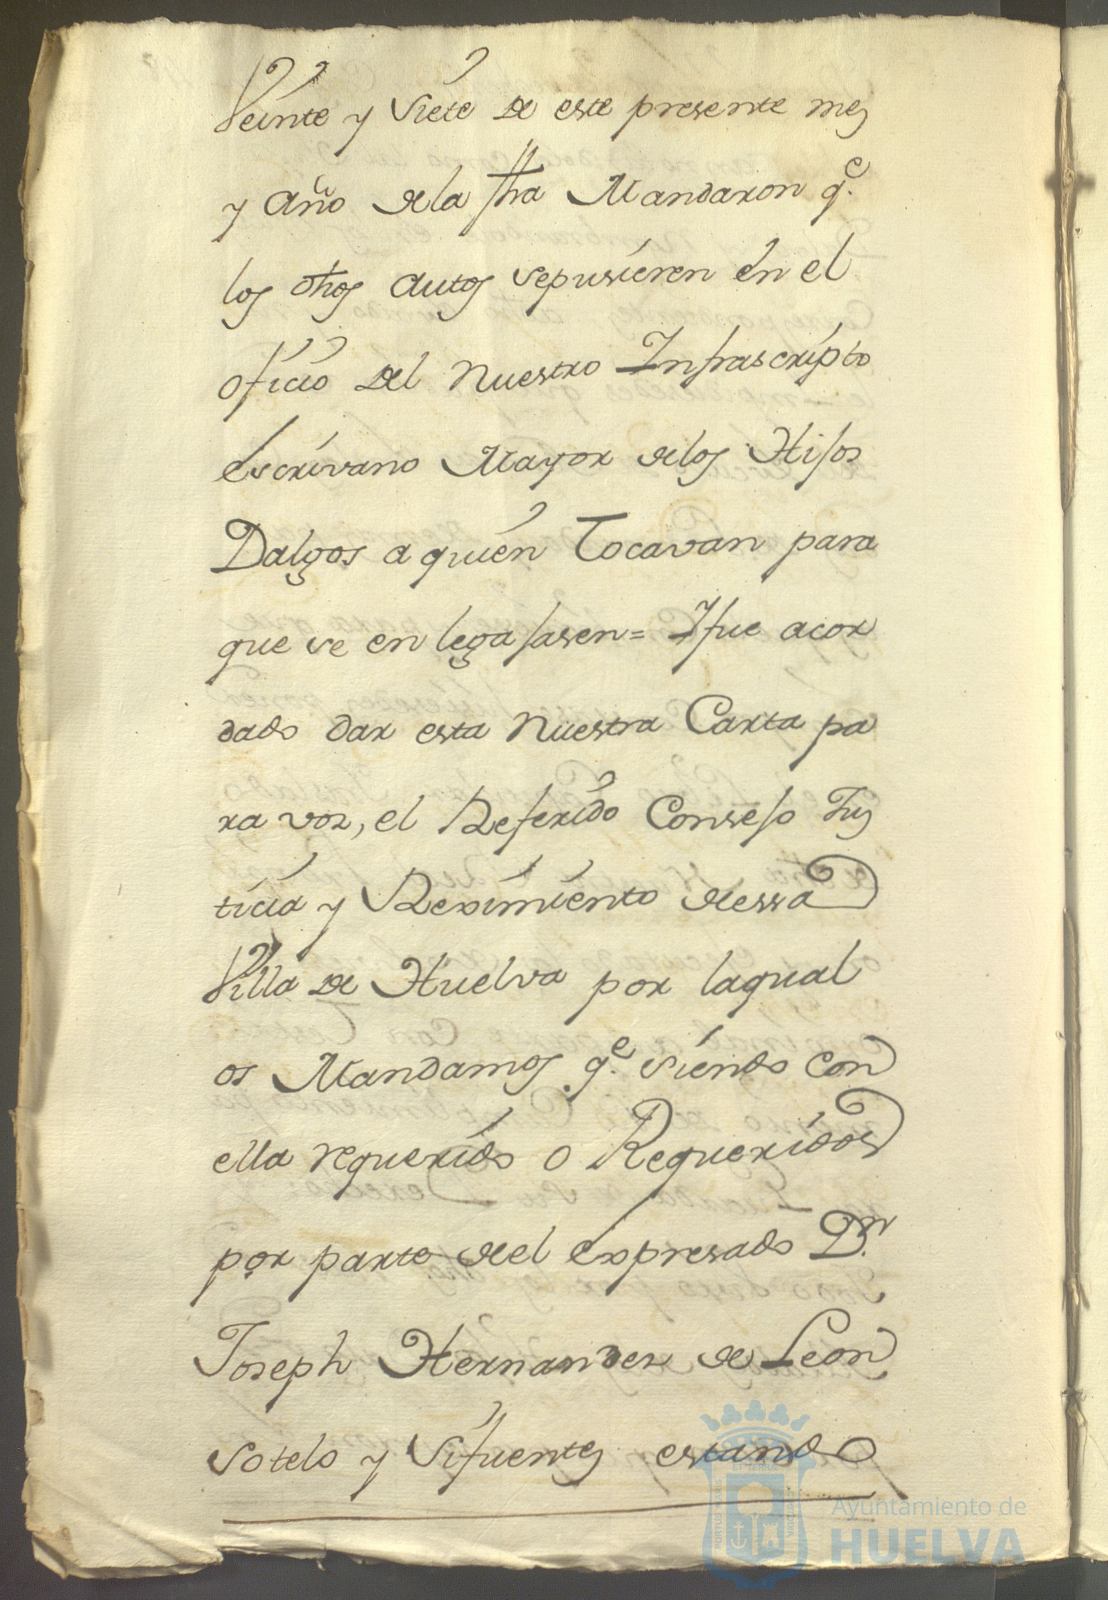 Veinte y Siete de este presente mes
y año dela fha Mandaron q.e
los dhos autos sepusieren en el
oficio del Nuestro Infrascripto
escrivano Mayor delos Hijos
Dalgos a quien Tocavan para
que se en legajasen= Yfue acor
dado dar esta Nuestra Carta pa
ra vos, el Referido Consejo Jus
ticia y Reximiento dessa
Villa de Huelva por laqual
os Mandamos q.e siendo con
ella requerido o Requeridos
por parte del expresado D.n
Joseph Hernandez de Leon
Sotelo y Sifuentes estando
Ayuntamiento de
HUELVA